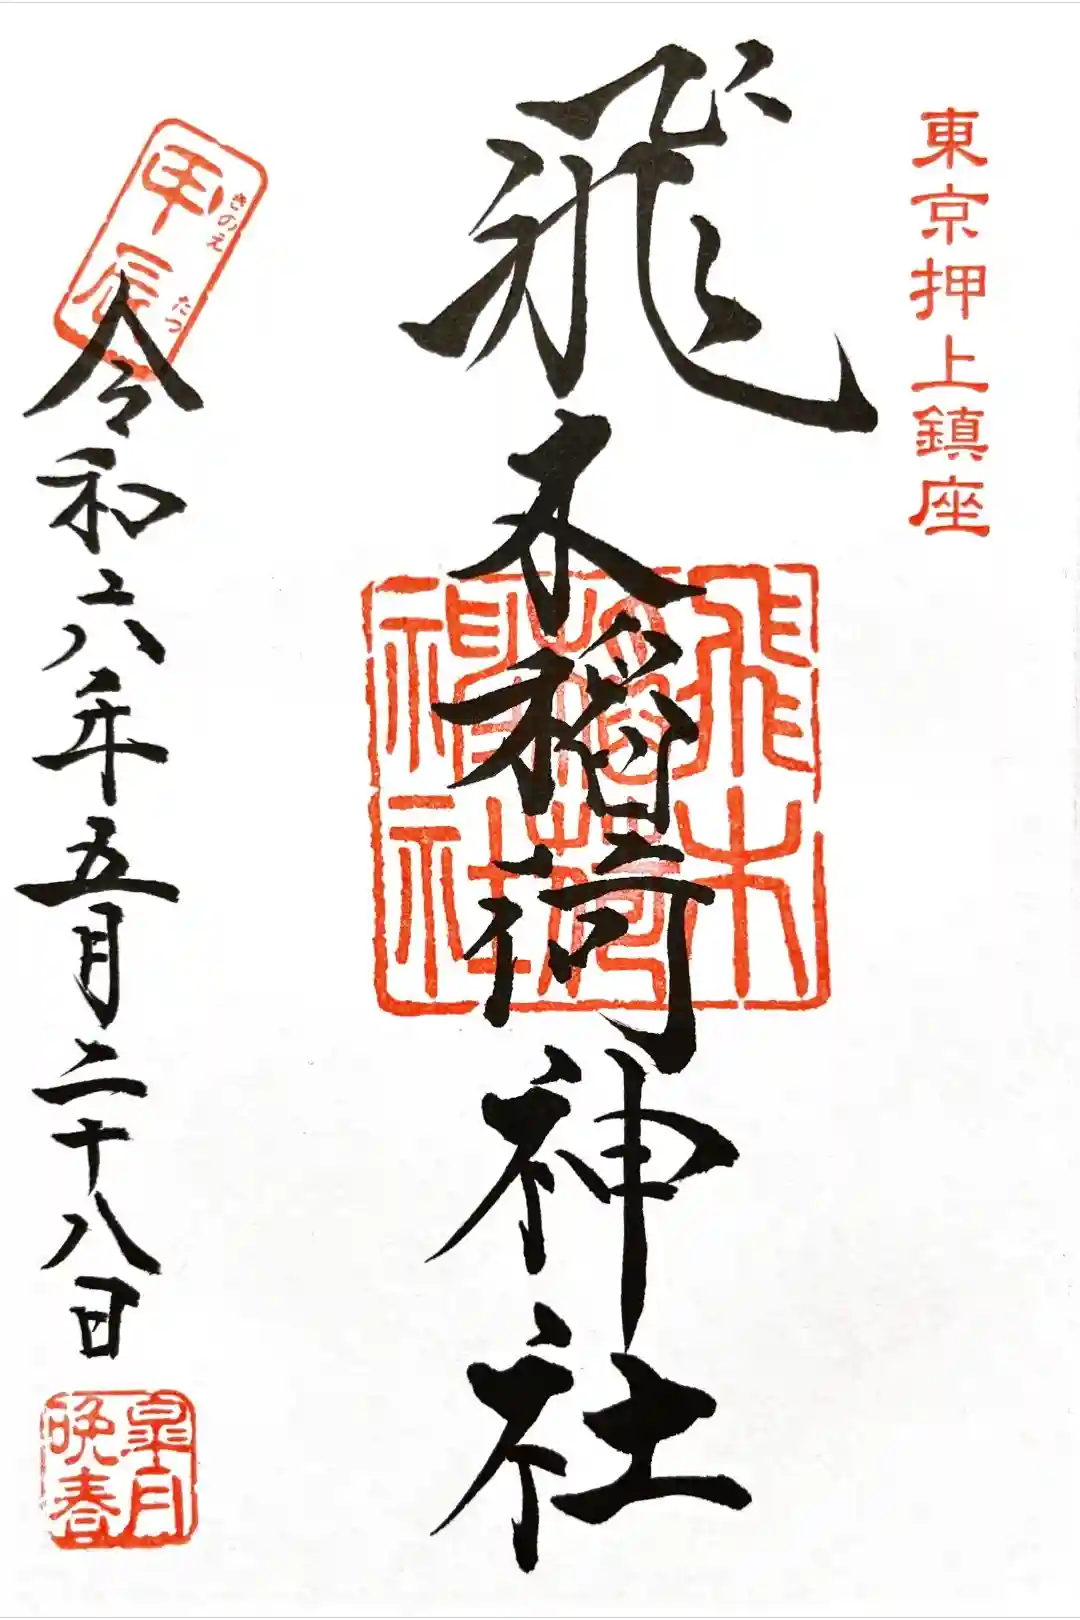 東京押上鎮座
飛木稲荷神社
飛木
稲荷
神社
令和六年五月二十八日
甲辰
きのえ
たつ
皐月
晩春